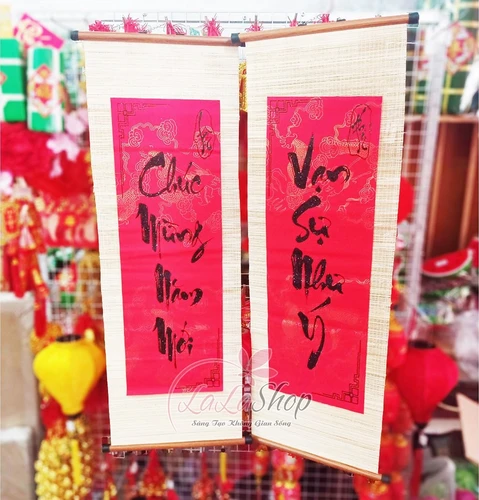 Chúc
Mừng
Năm
Mới
Vạn
Sự
Như
Ý
LaLaShop
Sáng Tạo Không Gian Sống